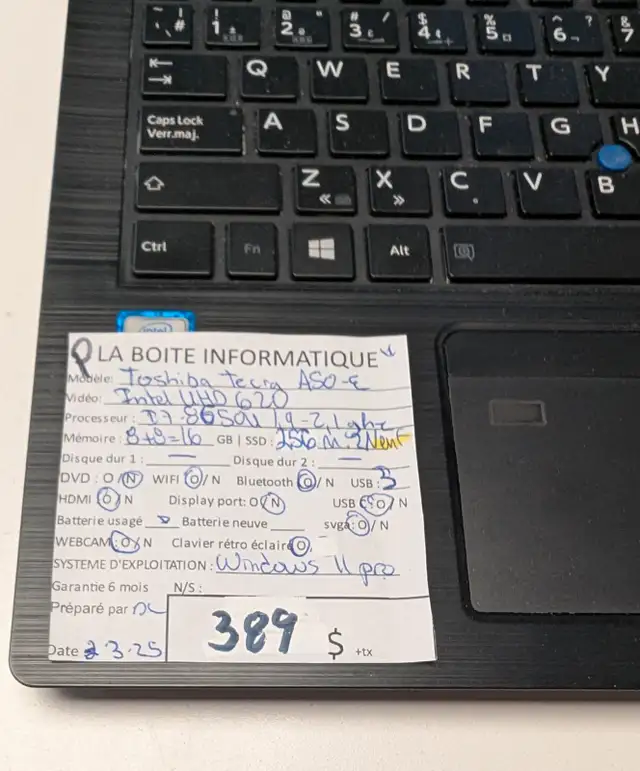 ~ ! 1 @ 2 # / 3 $ 4 % 5 ? 6 & 7
Q W E R T Y
Caps Lock
Verr.maj.
A S D F G H
Z X C V B
« »
Ctrl Fn Alt
intel
LA BOITE INFORMATIQUE
Modèle: Toshiba Tecra A50-E
Vidéo: Intel UHD 620
Processeur : I7-8650U 1,9-2,1 ghz
Mémoire : 8+8=16 GB | SSD : 256 M2 Neuf
Disque dur 1 : — Disque dur 2 : —
DVD : O/N WIFI O/N Bluetooth O/N USB : 3
HDMI O/N Display port: O/N USB C: O/N
Batterie usagé Batterie neuve svga: O/N
WEBCAM: O/N Clavier rétro éclairé O,
SYSTEME D'EXPLOITATION : Windows 11 pro
Garantie 6 mois N/S :
Préparé par DL
Date 2.3.25
389 $ +tx